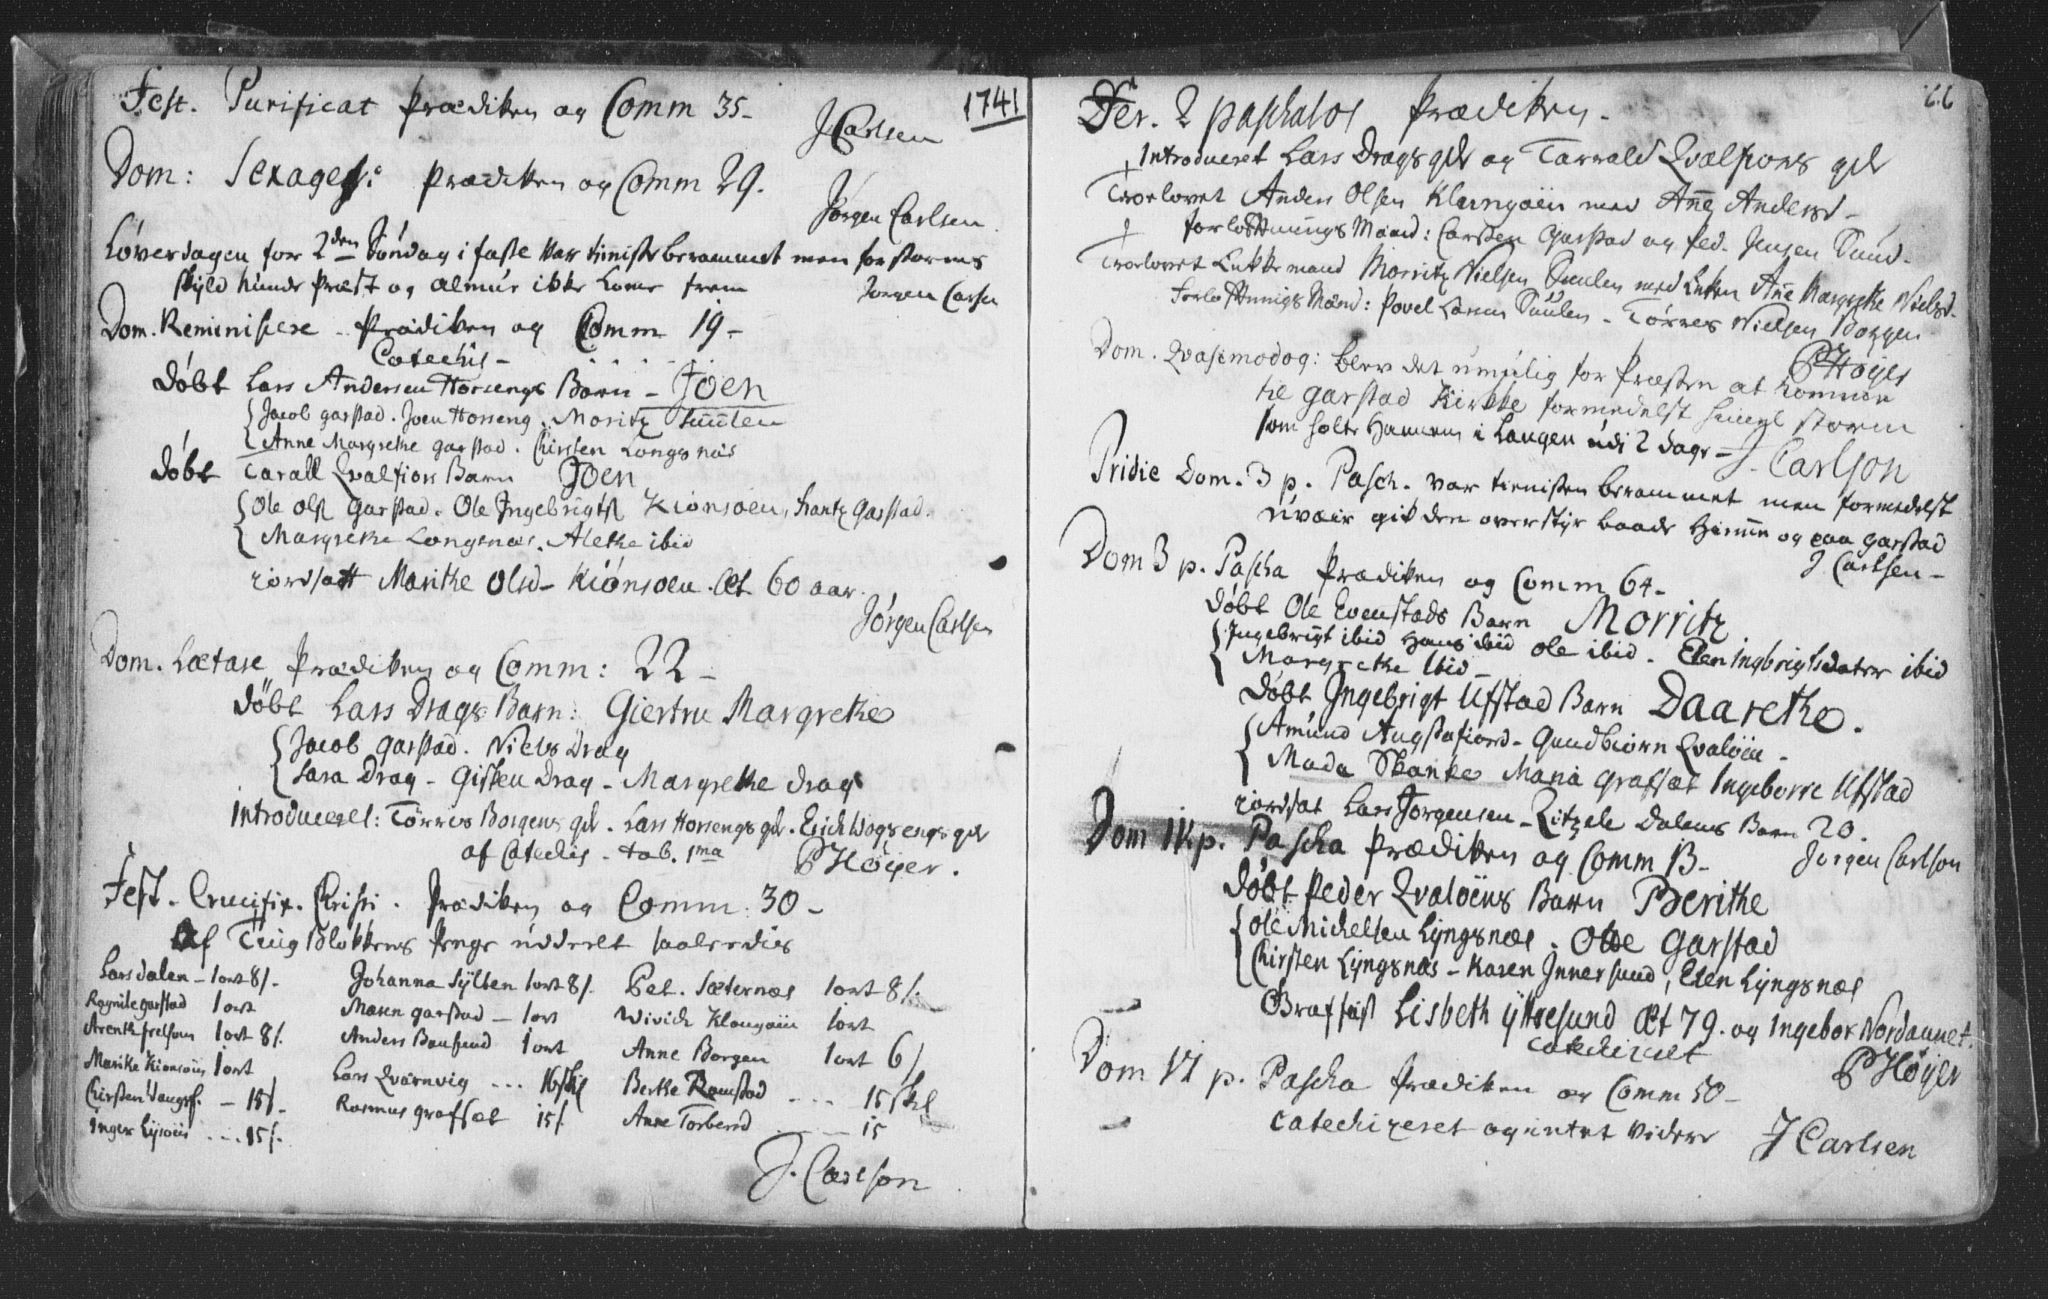 1741
Fest. Purificat Prædiken og Comm 35-
J Carlsen
Dom: Sexages: Prædiken og Comm 29.
Jørgen Carlsen
Løverdagen for 2den Søndag i faste var tieniste berammet men for storms
skyld kunde Præst og almue ikke komme frem
Jørgen Carlsen
Dom. Reminiscere - Prædiken og Comm 19-
Catechis-
Døbt Lars Andersen Horsengs Barn - Joen
Jacob garstad. Joen Horseng. Moritz Suulen
Anne Margrethe garstad. Chirsten Longsnæs
Døbt Tarald Qvalfiors Barn Joen
Ole Ols garstad. Ole Ingebrigts Kiønsøen, frantz garstad.
Margrethe Longsnæs. Alethe ibid
iordsatt Marithe Olsd- Kiønsøen. Æt 60 aar.
Jørgen Carlsen
Dom. Lætare Prædiken og Comm: 22-
Døbt Lars Drags Barn: Giertru Margrethe
Jacob garstad. Niels Drag
Sara Drag - Gisken Drag - Margrethe Drag
Introduceret: Tørris Borgens qde. Lars Horsengs qde. Erich Wogsengs qde
af Catechis - tab. 1ma
P Høyer.
Fest. Crucifix. Christi. Prædiken og Comm. 30-
Af Taug Blokkens Penge uddeelt saaledis
Lars dalen - 1 ort 8/. Johanna Sylten 1 ort 8/. Pet. Sæternæs 1 ort 8/.
Ragnile garstad 1 ort Maren garstad - 1 ort Wivich Klongøiin 1 ort
Arenth 1 ort 8/. Anders 1 ort Anne Borgen 1 ort 6/
Marithe Kionsøiin 1 ort Lars Qvarnvig ... 16 skil Berthe Ramstad .... 15 skl
Chirsten - 15/- Rasmus grafsæt 15/. Anne Torbersd - 15
Inger Lysøiis ... 15/.
J. Carlson
66
Fer. 2 paschatos Prædiken-
Introduceret Lars Drags qde og Tarrald Qvalfiors qde
Troelovet Anders Olsen Klungøiin med Anne Andersd-
forloftnings Mænd: Carsten Garstad og Ped. Jensen Sund-
Troelovet Enkkemand Morritz Nielsen Suulen med Enken Anne Margrethe Nielsd-
Forloftnings Mænd: Povel Larsen Suulen - Tørres Nielsen Borgen
P Høyer
Dom. Qvasimodog: blev det umulig for Præsten at komme
til garstad Kirkke formedelst storm
som holte Hannem i Langen udi 2 dage - J. Carlson
Pridie Dom. 3 p. Pasch. var tienisten berammet men formedelst
uvæir gik den overstyr baade Hemme og paa garstad
J. Carlsen-
Dom 3 p. Pascha Prædiken og Comm 64-
Døbt Ole Evenstads Barn Morritz
Ingebrigt ibid Hans ibid Ole ibid - Elen Ingbrigtsdater ibid
Margrethe Ibid-
Døbt Ingebrigt Ufstad Barn Daarethe.
Amund Augstafiord - Gundbiørn Qvaløiin -
Mada Skanke Maria grafsæt Ingeborre Ufstad
iordsat Lars Jørgensen - Ritzele Dalens Barn 20.
Jørgen Carlson
Dom IV p. Pascha Prædiken og Comm 13-
Døbt Peder Qvaløens Barn Berithe
Ole Michelsen Lyngsnæs. Ole Garstad
Chirsten Lyngsnæs - Karen Innersund, Elen Lyngsnæs
Graffæst Lisbeth Yttresund Æt 79. og Ingebor Nordaunet.
Catechizeret
P Høyer
Dom VI p. Pascha Prædiken og Comm 50-
Catechizeret og intet videre J Carlsen